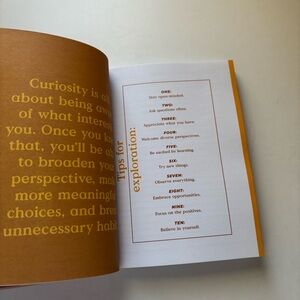 Curiosity is
about being
of what
you. Once you
that, you'll be
to broaden
perspective,
more meaningful
choices, and
unnecessary
Tips for
exploration:
ONE:
Stay open-minded.
TWO:
Ask questions often.
THREE:
Appreciate what you have.
FOUR:
Welcome diverse perspectives.
FIVE:
Be excited for learning.
SIX:
Try new things.
SEVEN:
Observe everything.
EIGHT:
Embrace opportunities.
NINE:
Focus on the positives.
TEN:
Believe in yourself.